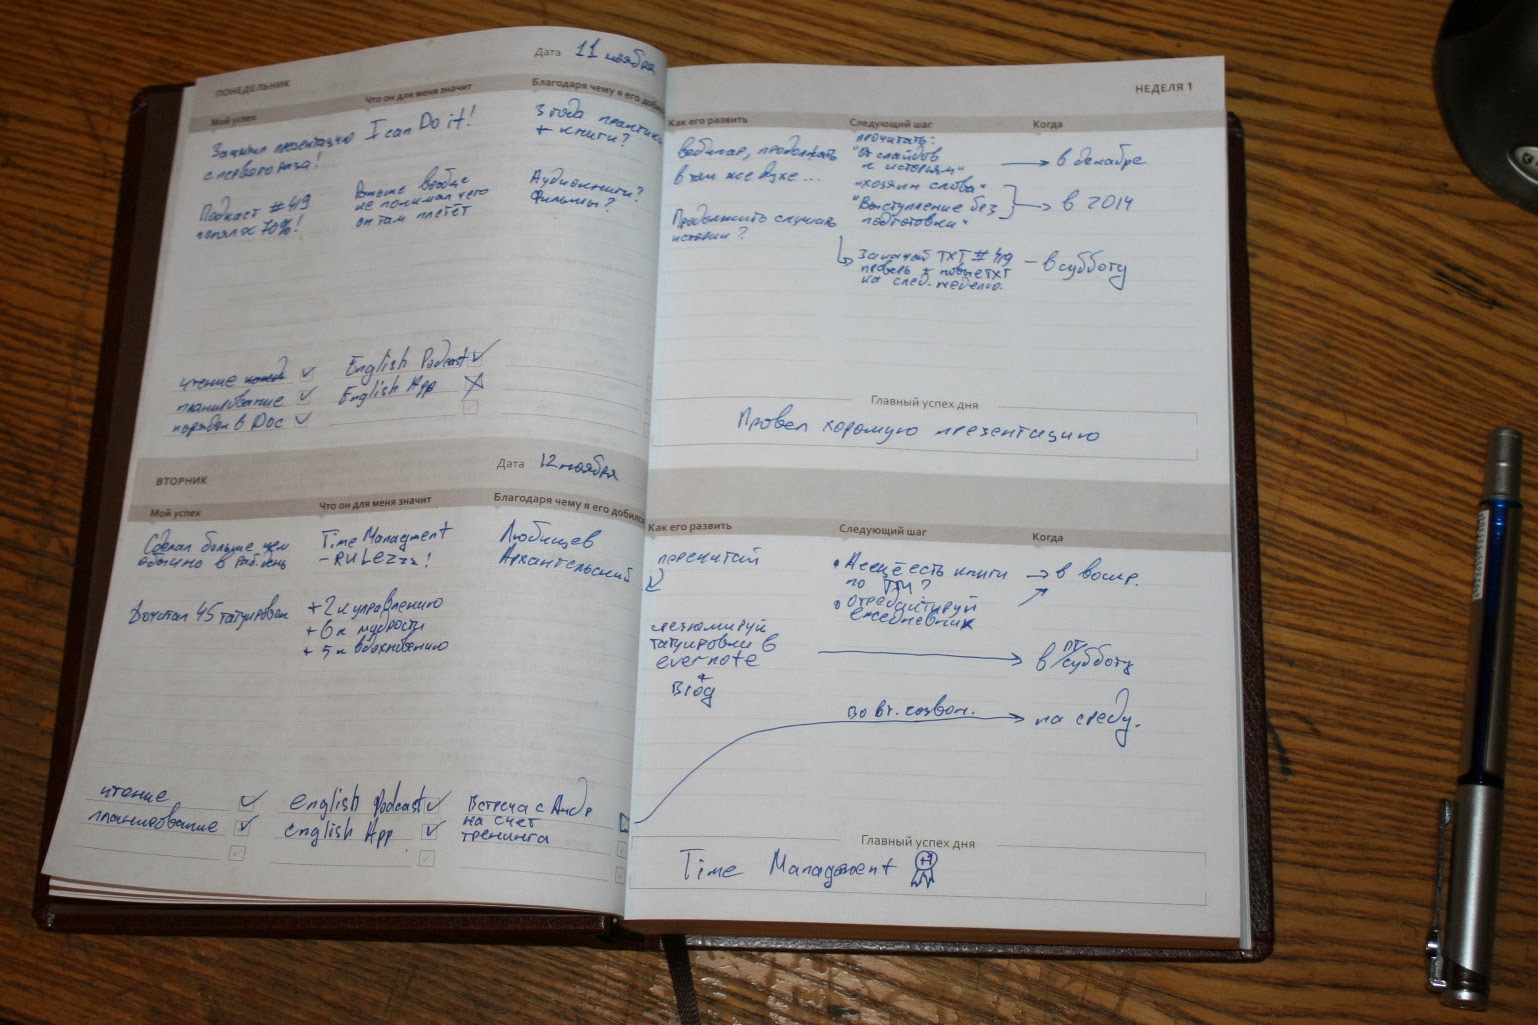 ПОНЕДЕЛЬНИК
Дата 11 ноября
Мой успех
Что он для меня значит
Благодаря чему я его добился
Защитил презентацию
с первого раза!
I can Do it!
3 года практики
+ книги?
Подкаст #419
понял на 70%!
Раньше вообще
не понимал чего
он там плетёт
Аудиокниги?
Фильмы?
чтение
планирование
порядок в Doc
English Podcast
English App
НЕДЕЛЯ 1
Как его развить
Следующий шаг
Когда
вебинар, продолжать
в том же духе...
прочитать:
"От слайдов
к историям"
"хозяин слова"
"Выступление без
подготовки"
в декабре
в 2014
Продолжить слушать
истории?
Закачай TXT #419
проверь + новые TXT
на след. неделю.
– в субботу
Главный успех дня
Провел хорошую презентацию
ВТОРНИК
Дата 12 ноября
Мой успех
Что он для меня значит
Благодаря чему я его добился
Сделал больше чем
обычно в раб. день
Time Managment
- RULEzzz!
Любищев
Архангельский
Дочитал 45 татуировок
+2 к управлению
+6 к мудрости
+5 к вдохновению
чтение
планирование
english Podcast
english App
Встреча с Андр
на счет
тренинга
Как его развить
Следующий шаг
Когда
перечитай
• А ещё есть книги
по ТМ?
• Отредактируй
ежедневник
в воскр.
татуировки в
evernote
+
Blog
в субботу
пт
во вт. созвон.
на среду.
Главный успех дня
Time Managment